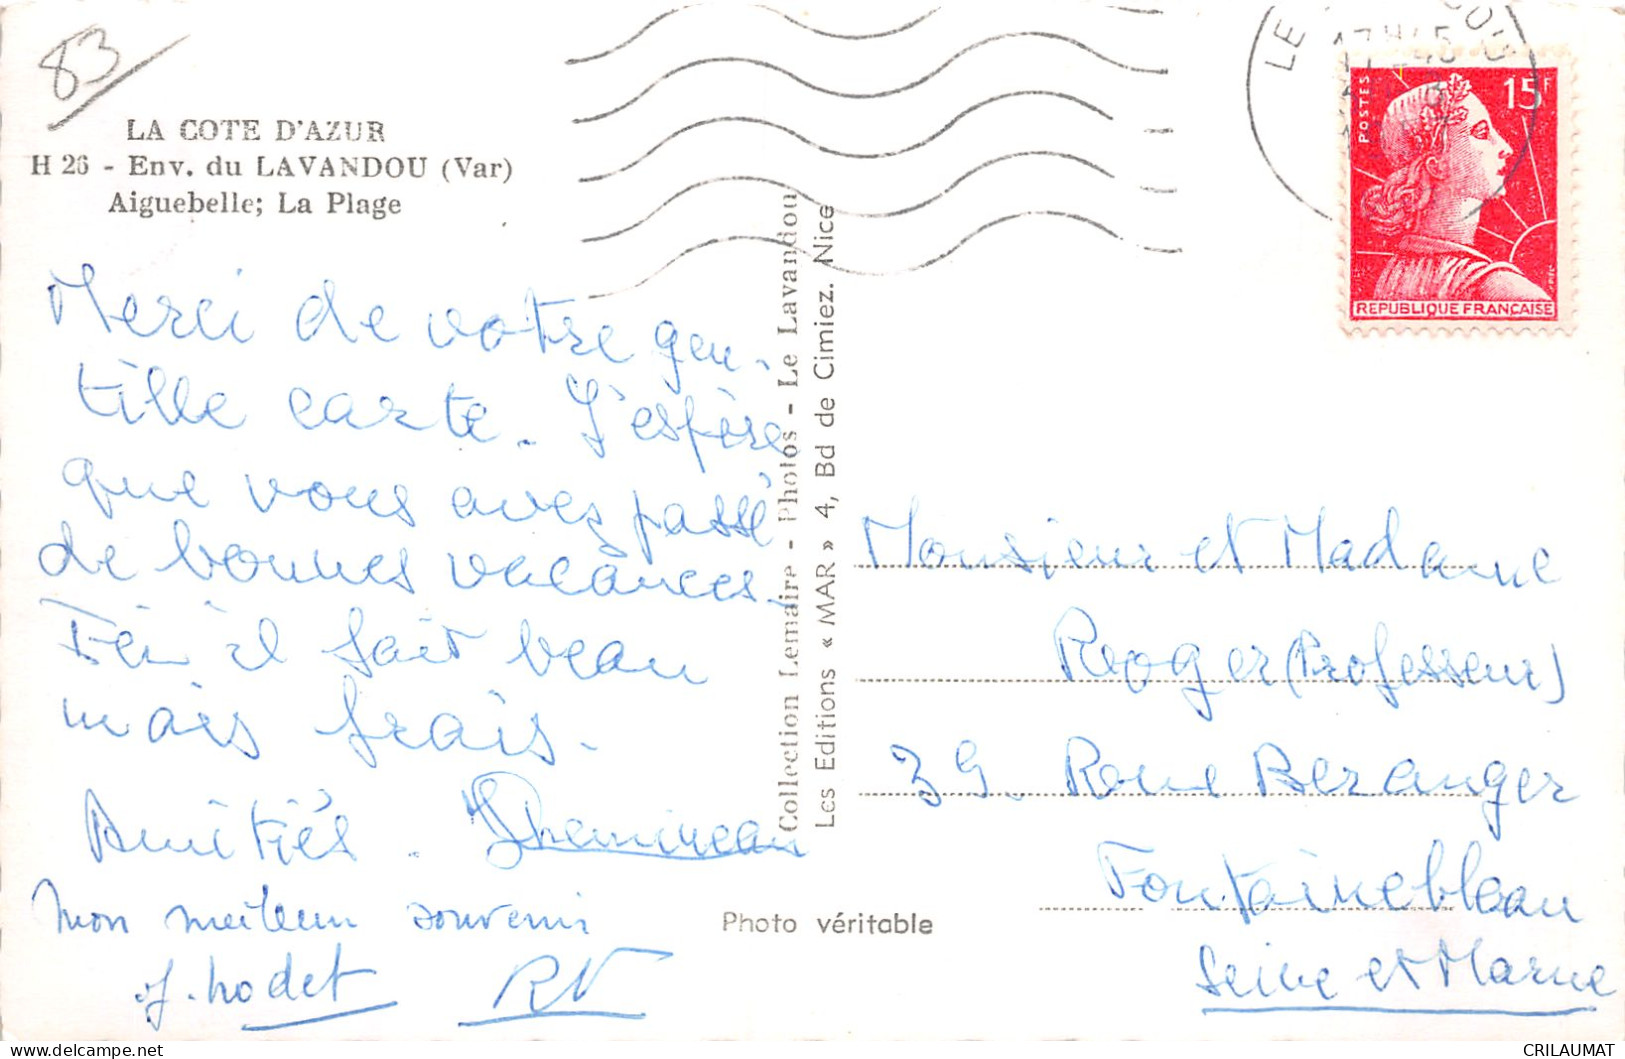 83
LA COTE D'AZUR
H 26 - Env. du LAVANDOU (Var)
Aiguebelle; La Plage
Merci de votre gen-
tille carte. J'espère
que vous avez passé
de bonnes vacances.
Ici il fait beau
mais frais.
Amitiés.
Mon meilleur souvenir
RN
Collection Lemaire - Photos - Le Lavandou
Les Editions « MAR » 4, Bd de Cimiez. Nice
Photo véritable
LE
POSTES
15F
REPUBLIQUE FRANCAISE
Monsieur et Madame
Roger (Professeur)
39 Roue Beranger
Fontainebleau
Seine et Marne
CRILAUMAT